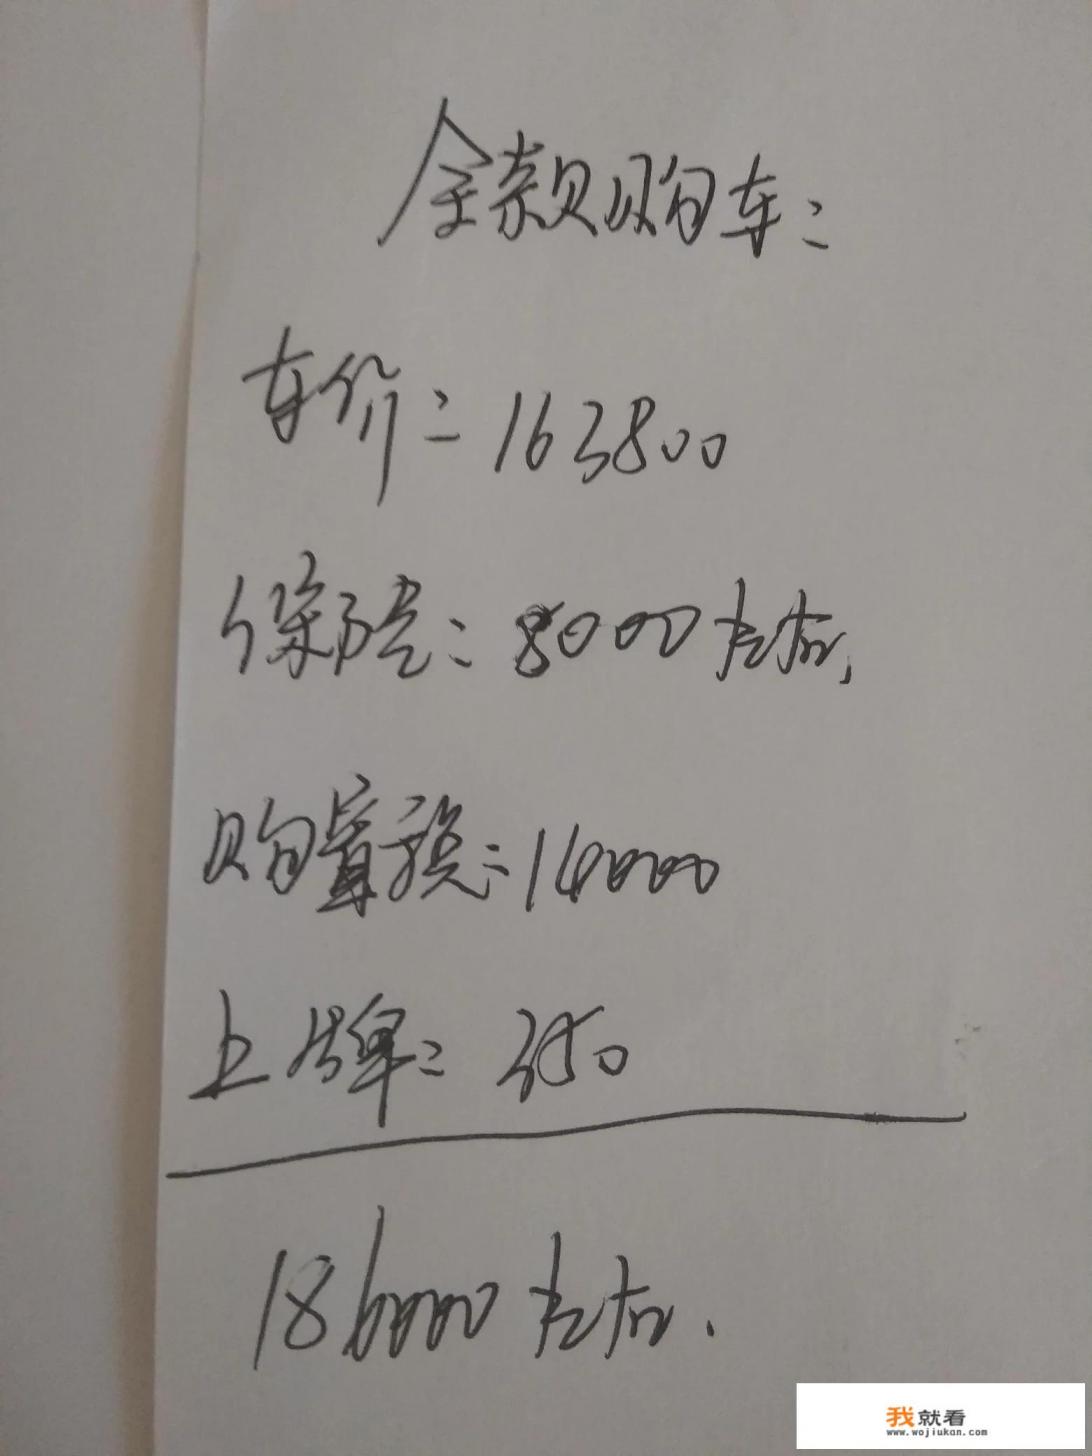 全款购车:
车价:163800
保险:8000左右,
购置税:14000
上牌:350
186000左右.
我就看
www.wojiukan.com